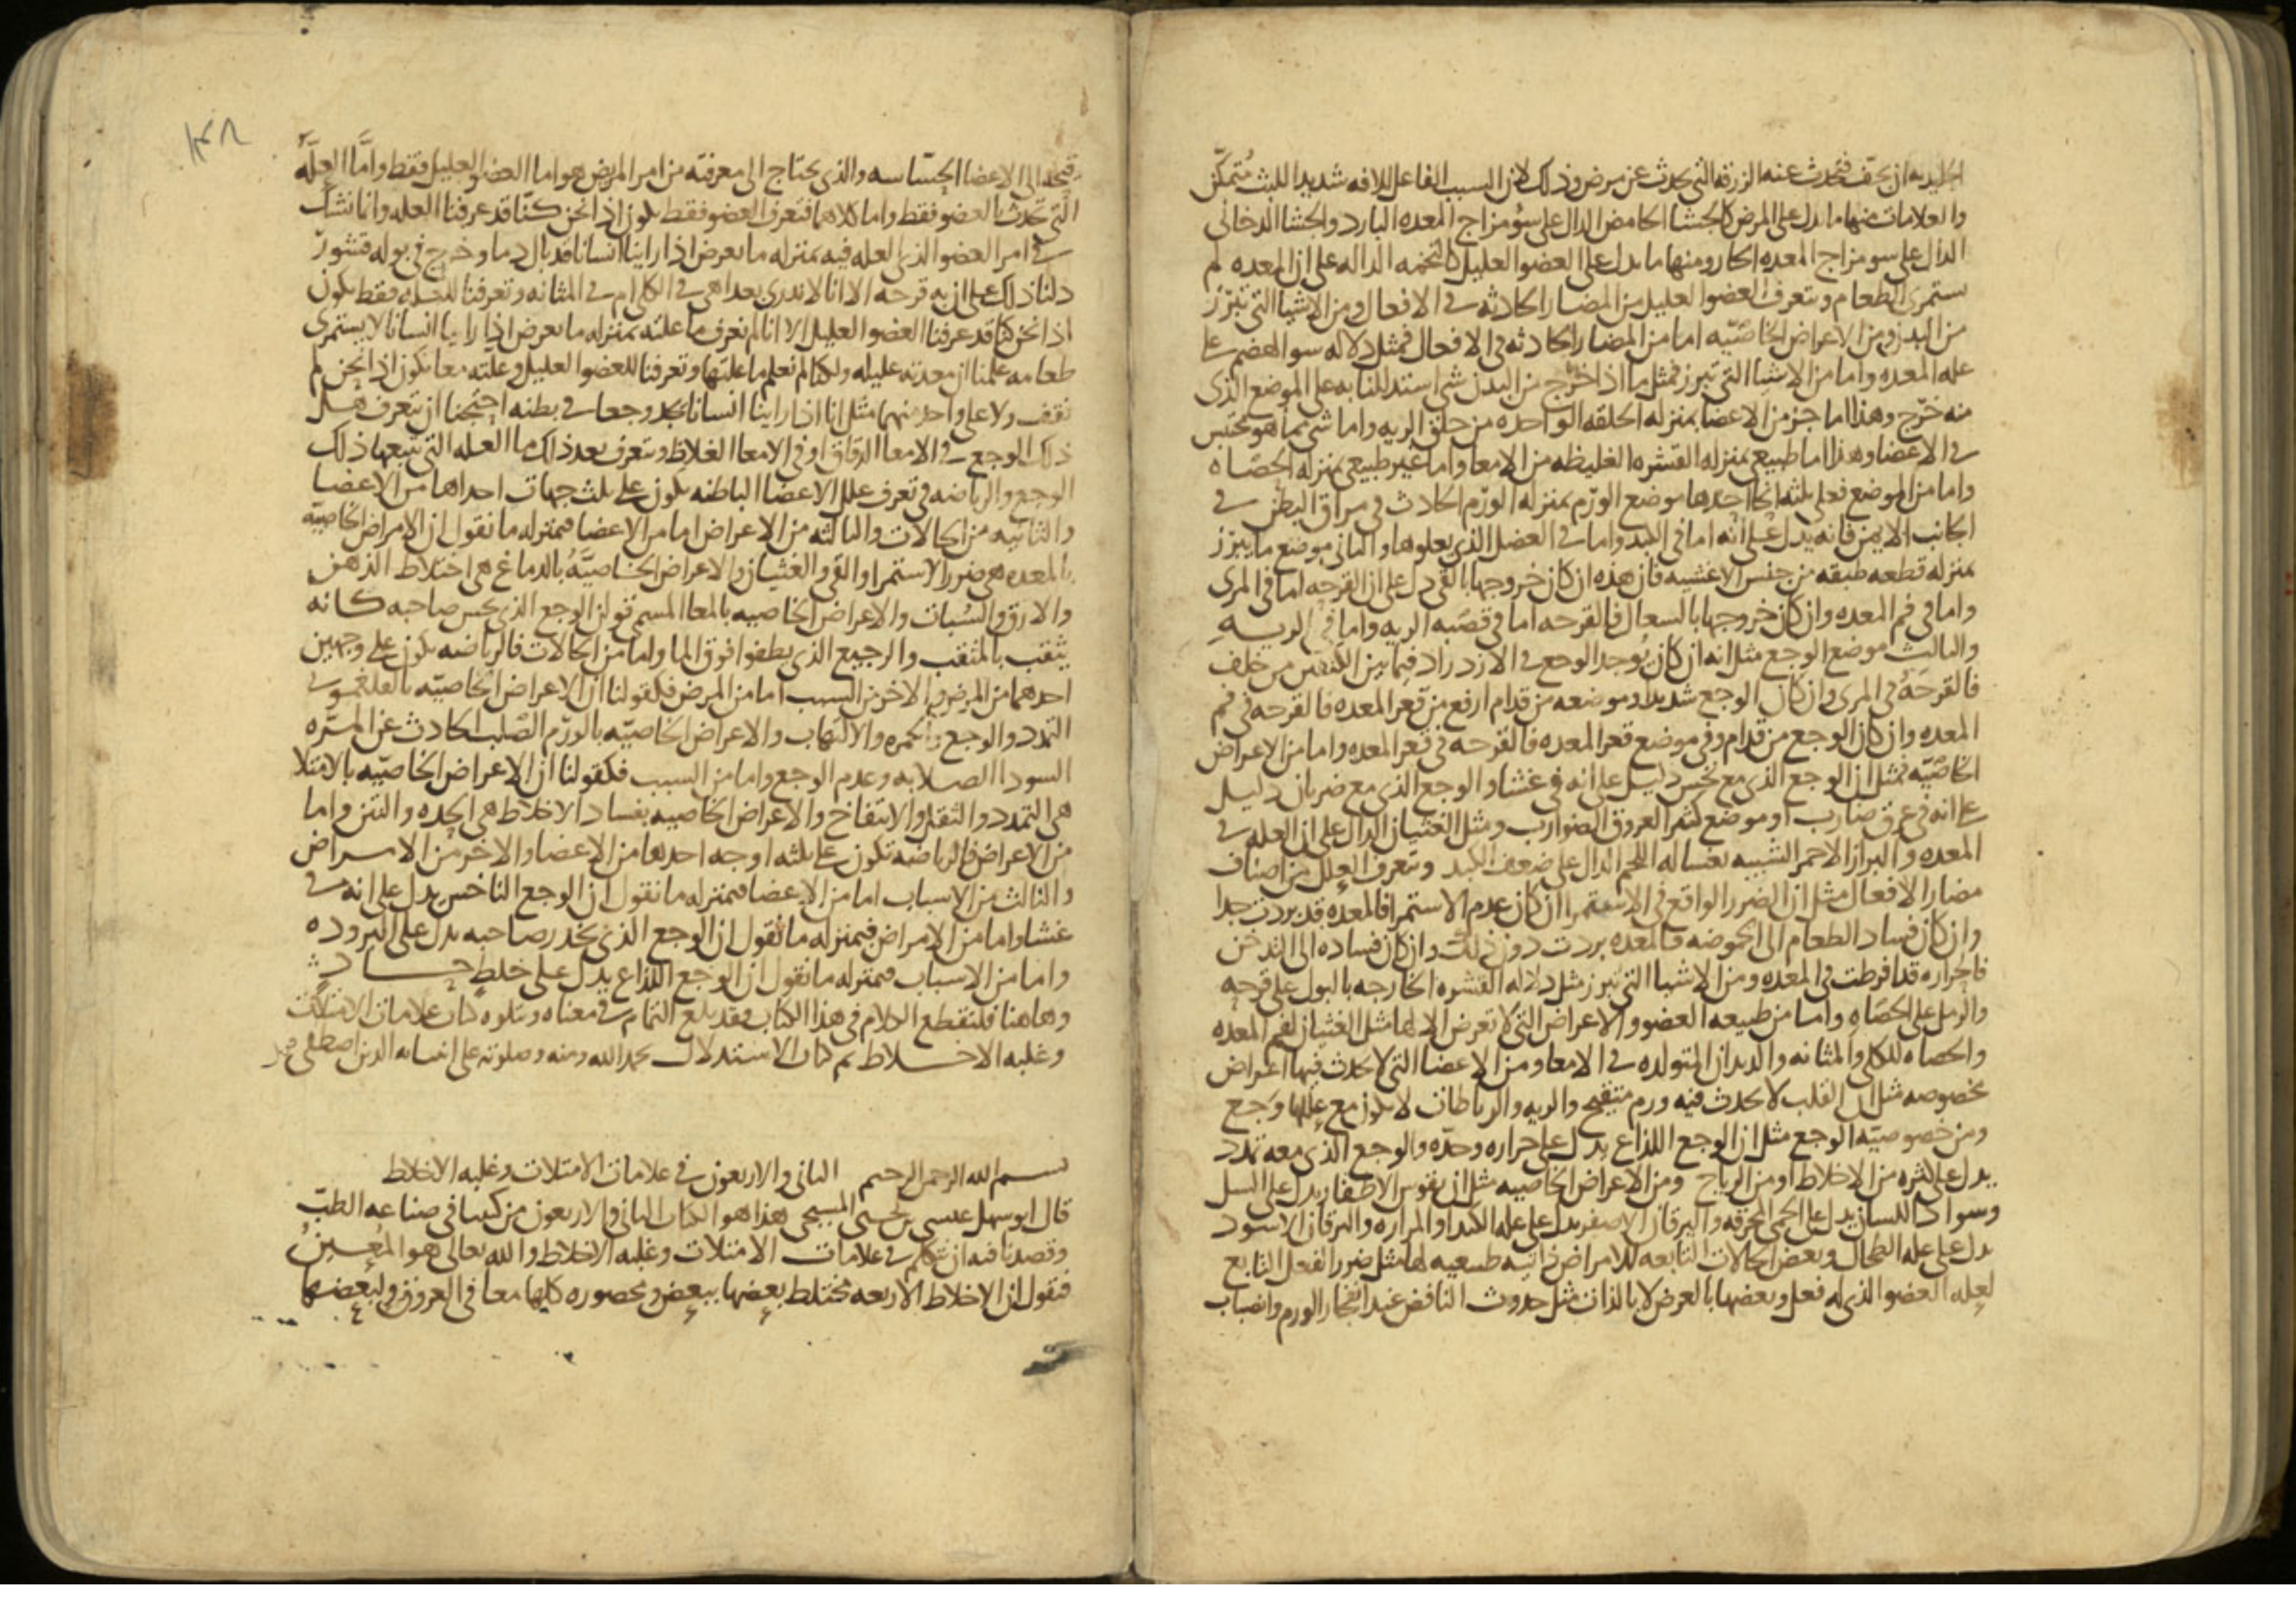 الجليديه ان يجف فتحدث عنه الزرقه التي تحدث عن مرض وذلك لان السبب الفاعل للافه شديد اللبث متمكن
والعلامات منها ما يدل على المرض كالجشا الحامض الدال على سو مزاج المعده البارد والجشا الدخاني
الدال على سو مزاج المعده الحار ومنها ما يدل على العضو العليل كالتخمه الداله على ان المعده لم
تستمرى الطعام ويتعرف العضو العليل من المضار الحادثه في الافعال ومن الاشيا التي تبرز
من البدن ومن الاعراض الخاصّيّه اما من المضار الحادثه في الافعال فمثل دلاله سو الهضم على
عله المعده واما من الاشيا التي تبرز فمثل ما اذا خرج من البدن شي استدللنا به على الموضع الذي
منه خرج وهذا اما جز من الاعضا بمنزله الحلقه الواحده من حلق الريه واما شي مما هو محتبس
في الاعضا وهذا اما طبيعي بمنزله القشره الغليظه من الامعا واما غير طبيعي بمنزله الحصاه
واما من الموضع فعلى ثلثه انحا احدها موضع الورم بمنزله الورم الحادث في مراق البطن في
الجانب الايمن فانه يدل على انه اما في الكبد واما في العضل الذي يعلوها والثاني موضع ما يبرز
بمنزله قطعه طبقه من جنس الاغشيه فان هذه ان كان خروجها بالقي دل على ان القرحه اما في المرى
واما في فم المعده وان كان خروجها بالسعال فالقرحه اما في قصبه الريه واما في الريه
والثالث موضع الوجع مثل انه ان كان يوجد الوجع في الازدراد فيما بين الكتفين من خلف
فالقرحه في المرى وان كان الوجع شديدا وموضعه من قدام ارفع من قعر المعده فالقرحه في فم
المعده وان كان الوجع من قدام وفي موضع قعر المعده فالقرحه في قعر المعده واما من الاعراض
الخاصّيّه فمثل ان الوجع الذي مع نخس دليل على انه في غشا والوجع الذي مع ضربان دليل
على انه في عرق ضارب او موضع كثير العروق الضوارب ومثل الغثيان الدال على ان العله في
المعده والبراز الاحمر الشبيه بغساله اللحم الدال على ضعف الكبد ويتعرف العلل من اصناف
مضار الافعال مثل ان الضرر الواقع في الاستمرا ان كان عدم الاستمرا فالمعده قد بردت جدا
وان كان فساد الطعام الى الحموضه فالمعده بردت دون ذلك وان كان فساده الى التدخن
فالحراره قد افرطت في المعده ومن الاشيا التي تبرز مثل دلاله القشره الخارجه بالبول على قرحه
والرمل على الحصاه واما من طبيعه العضو والاعراض التي لا تعرض الا لها مثل الغثيان لفم المعده
والحصاه للكلى والمثانه والديدان المتولده في الامعا ومن الاعضا التي لا يحدث فيها اعراض
مخصوصه مثل ان القلب لا يحدث فيه ورم متقيح والريه والرباطات لا يكون مع عللها وجع
ومن خصوصيه الوجع مثل ان الوجع اللذاع يدل على حراره وحده والوجع الذي معه تمدد
يدل على كثره من الاخلاط او من الرياح ومن الاعراض الخاصيه مثل ان تقوس الاظفار يدل على السل
وسواد اللسان يدل على الحمى المحرقه واليرقان الاصفر يدل على عله الكبد او المراره واليرقان الاسود
يدل على عله الطحال وبعض الحالات التابعه للامراض ذاتيه طبيعيه لها مثل ضرر الفعل التابع
لعله العضو الذي له فعل وبعضها بالعرض لا بالذات مثل حدوث النافض عند انفجار الورم وانصباب
قيحه الى الاعضا الحسّاسه والذي يحتاج الى معرفته من امر المريض هو اما العضو العليل فقط واما العله
التي تحدث بالعضو فقط واما كلاهما فتعرف العضو فقط يكون اذا نحن كنا قد عرفنا العله وانما نشك
في امر العضو الذي العله فيه بمنزله ما يعرض اذا راينا انسانا قد بال دما وخرج في بوله قشور
دلنا ذلك على ان به قرحه الا انا لا ندري بعد اهي في الكلى ام في المثانه وتعرفنا للعله فقط يكون
اذا نحن كنا قد عرفنا العضو العليل الا انا لم نعرف ما علته بمنزله ما يعرض اذا راينا انسانا لا يستمرى
طعامه علمنا ان معدته عليله ولكنا لم نعلم ما علتها وتعرفنا للعضو العليل وعلته معا يكون اذا نحن لم
نقف ولا على واحد منهما مثل انا اذا راينا انسانا يجد وجعا في بطنه احتجنا ان نتعرف هل
ذلك الوجع في الامعا الدقاق او في الامعا الغلاظ ونتعرف بعد ذلك ما العله التي يتبعها ذلك
الوجع والرياضه في تعرف علل الاعضا الباطنه يكون على ثلث جهات احداها من الاعضا
والثانيه من الحالات والثالثه من الاعراض اما من الاعضا فبمنزله ما نقول ان الامراض الخاصيّه
بالمعده هي ضرر الاستمرا والقي والغثيان والاعراض الخاصيّه بالدماغ هي اختلاط الذهن
والارق والسبات والاعراض الخاصيه بالمعا المسمى قولن الوجع الذي يحس صاحبه كانه
يثقب بالمثقب والرجيع الذي يطفوا فوق الما واما من الحالات فالرياضه يكون على وجهين
احدهما من المرض والاخر من السبب اما من المرض فكقولنا ان الاعراض الخاصيّه بالفلغموني
التمدد والوجع والحمره والالتهاب والاعراض الخاصيّه بالورم الصلب الحادث عن المرّه
السودا الصلابه وعدم الوجع واما من السبب فكقولنا ان الاعراض الخاصيّه بالامتلا
هي التمدد والثقل والانتفاخ والاعراض الخاصيه بفساد الاخلاط هي الحده والنتن واما
من الاعراض فالرياضه تكون على ثلثه اوجه احدها من الاعضا والاخر من الامراض
والثالث من الاسباب اما من الاعضا فبمنزله ما نقول ان الوجع الناخس يدل على انه في
غشا واما من الامراض فبمنزله ما نقول ان الوجع الذي يخدر صاحبه يدل على البروده
واما من الاسباب فبمنزله ما نقول ان الوجع اللذاع يدل على خلط حاد
وهاهنا فلنقطع الكلام في هذا الكتاب فقد بلغ التمام في معناه ويتلوه كتاب علامات الامتلات
وغلبه الاخلاط تم كتاب الاستدلال بحمد الله ومنه وصلوته على انبيائه الذين اصطفى
بسم الله الرحمن الرحيم الثاني والاربعون في علامات الامتلات وغلبه الاخلاط
قال ابو سهل عيسى بن يحيى المسيحي هذا هو الكتاب الثاني والاربعون من كتبنا في صناعه الطبّ
وقصدنا فيه ان نتكلم في علامات الامتلات وغلبه الاخلاط والله تعالى هو المعين
فنقول ان الاخلاط الاربعه مختلط بعضها ببعض ومحصوره كلها معا في العروق ولبعضها
١٣٨